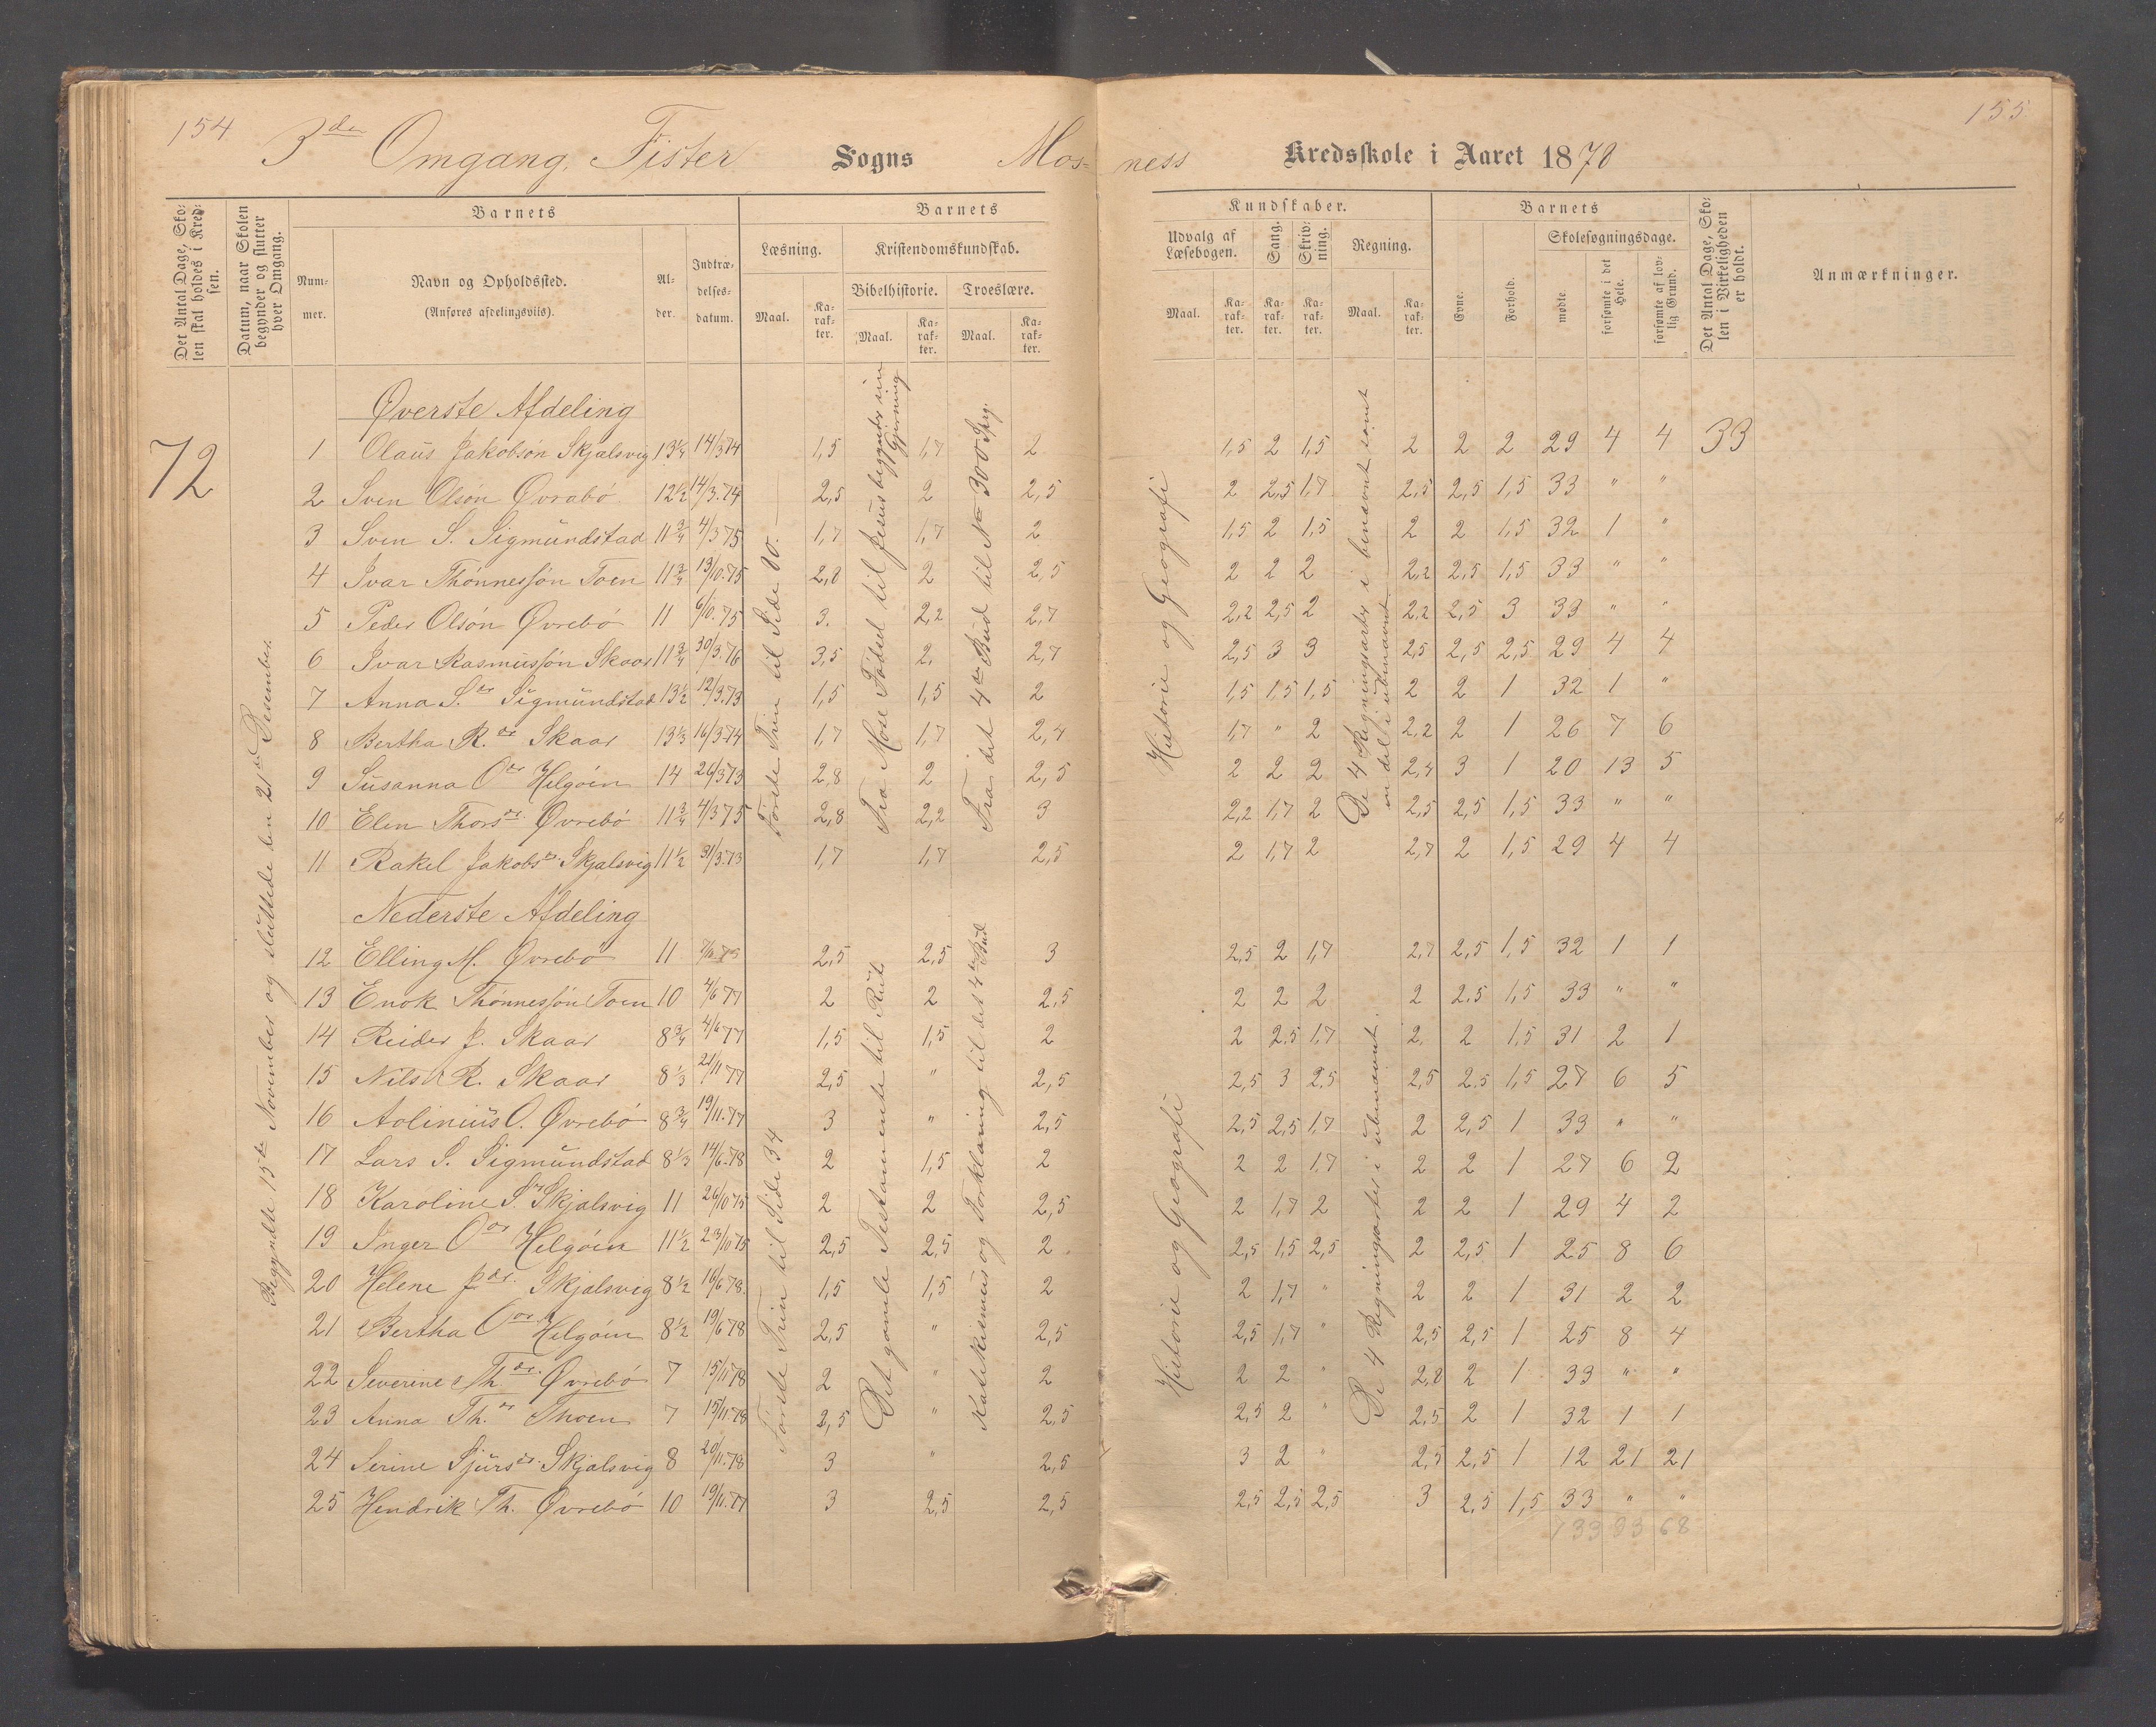 154
155
3die Omgang. Fister Sogns Mos-ness Kredsskole i Aaret 1878
Det Antal Dage, Skolen skal holdes i Kredsen.
Datum, naar Skolen begynder og slutter hver Omgang.
Barnets
Barnets
Kundskaber.
Barnets
Nummer.
Navn og Opholdssted.
(Anføres afdelingsviis).
Alder.
Indtrædelsesdatum.
Læsning.
Kristendomskundskab.
Bibelhistorie.
Troeslære.
Maal.
Karakter.
Maal.
Karakter.
Maal.
Karakter.
Udvalg af Læsebogen.
Sang.
Skrivning.
Regning.
Maal.
Karakter.
Karakter.
Karakter.
Maal.
Karakter.
Evne.
Forhold.
Skolesøgningsdage.
mødte.
forsømte i det Hele.
forsømte af lovlig Grund.
Det Antal Dage, Skolen i Virkeligheden er holdt.
Anmærkninger.
72
Begyndte 15de November og sluttede den 21de Desember.
Øverste Afdeling
1 Olaus Jakobsøn Skjalsvig 13¼ 14/3 74 1,5 1,7 2 1,5 2 1,5 2 2 2 29 4 4 33
2 Sven Olsøn Øvrabø 12½ 14/3.74 2,5 2 2,5 2 2,5 1,7 2,5 2,5 1,5 33 " "
3 Sven S. Sigmundstad 11¾ 4/3 75 1,7 1,7 2 1,5 2 1,5 2 2 1,5 32 1 "
4 Ivar Thönnessön Toen 11¾ 13/10.75 2,8 2 2,5 2 2 2 2,2 2,5 1,5 33 " "
5 Peder Olsön Øvrebö 11 6/10.75 3. 2,2 2,7 2,2 2,5 2 2,2 2,5 3 33 " "
6 Ivar Rasmussön Skaar 11¾ 30/3.76 3,5 2. 2,7 2,5 3 3 2,5 2,5 2,5 29 4 4
7 Anna S.dr Sigmundstad 13½ 12/3.73 1,5 1,5 2 1,5 1,5 1,5 2 2 1 32 1 "
8 Bertha R.dr Skaar 13⅓ 16/3.74 1,7 1,7 2,7 1,7 " 2 2,2 2 1 26 7 6
9 Susanna Odr Helgöen 14 26/3 73 2,8 2 2,5 2 2 2 2,7 3 1 20 13 5
10 Elen Thorsdr. Øvrebö 11¾ 4/3 75 2,8 2,2 3 2,2 1,7 2 2,5 2,5 1,5 33 " "
11 Rakel Jakobsdr. Skjalsvig 11½ 31/3.73 1,7 1,7 2,5 2 1,7 2 2,7 2 1,5 29 4 4
Første Trin til Side 80.
Fra Mose Födsel til Jesus begynder sin Gjerning
Fra det 4de Bud til No 300 Spg.
Historie og Geografi
De 4 Regningsarter i benævnt samt en del i ubenævnt
Nederste Afdeling
12 Elling M. Øvrebø 11 2,5 2,5 3 2,5 2 1,7 2,7 2,5 1,5 32 1 1
13 Enok Thönnessön Toen 10 4/6 77 2 2 2,5 2 2 2 2 2.5 1,5 33 " "
14 Reider J. Skaar 8¾ 4/6 77 1,5 1,5 2 2 2.5 1,7 2. 2 1,5 31 2 1
15 Nils R. Skaar 8⅓ 21/11 77 2,5 " 2,5 2,5 3 2,5 2,5 2.5 1,5 27 6 5
16 Aolinius O. Øvrebö 8¾ 19/11.77 3 " 2,5 2,5 2,5 1,7 2 2,5 1 33 " "
17 Lars S. Sigmundstad 8⅓ 14/6.78 2 1,5 2 2 2 1,7 2 2 1 27 6 2
18 Karoline Sdr Skjalsvig 11 26/10 75 2 2 2,5 2 1,7 2 2 2 1 29 4 2
19 Inger Odr Helgöen 11½ 23/10 75 2,5 2,5 2. 2,5 1,5 2,5 2 2,5 1 25 8 6
20 Helene Jdr. Skjalsvig 8½ 16/6.78. 1,5 1,5 2 2 1,7 " 2 2 1 31 2 2
21 Bertha Odr Helgöen 8½ 19/6 78 2,5 " 2,5 2,5 1,7 " 2,5 2,5 1 25 8 4
22 Severine Thdr. Øvrebö 7 15/11 78 2 " 2 2 2 " 2,8 2 1 33 " "
23 Anna Th.dr Thoen 7 15/11.78 2,5 " 2,5 2,5 2 " 2,5 2 1 32 1 1
24 Serine Sjursdr. Skjalsvig 8 20/11.78 3 " 2,5 3 2 " 2,5 2,5 1 12 21 21
25 Hendrik Th. Øvrebö 10 19/11.77 3 2,5 2,5 2,5 2,5 2,5 3 2,5 1,5 33 " "
Første Trin til Side 34
Det gamle Testamente til Rut
Katekismus og Forklaring til det 4de Bud
Historie og Geografi
De 4 Regningsarter i ubenævnt.
733 93 68